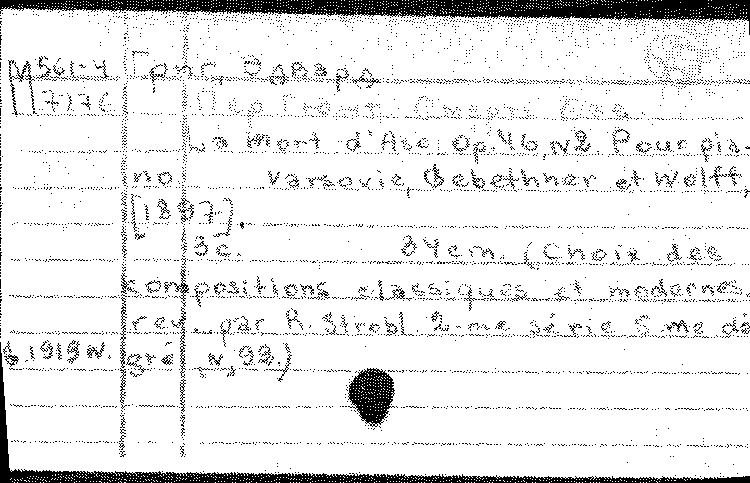 М 561-4 Григ, Эдвард
7176 Пер Гюнт. Смерть Озе.
La mort d'Ase. Op. 46, N2. Pour pia-
no. Varsovie, Gebethner et Wolff,
[1897].
3 с. 34 cm. (Choix des
compositions classiques et modernes.
rev. par R. Strobl. 2-me série 5-me dé
1919 N. gré, N, 93.)